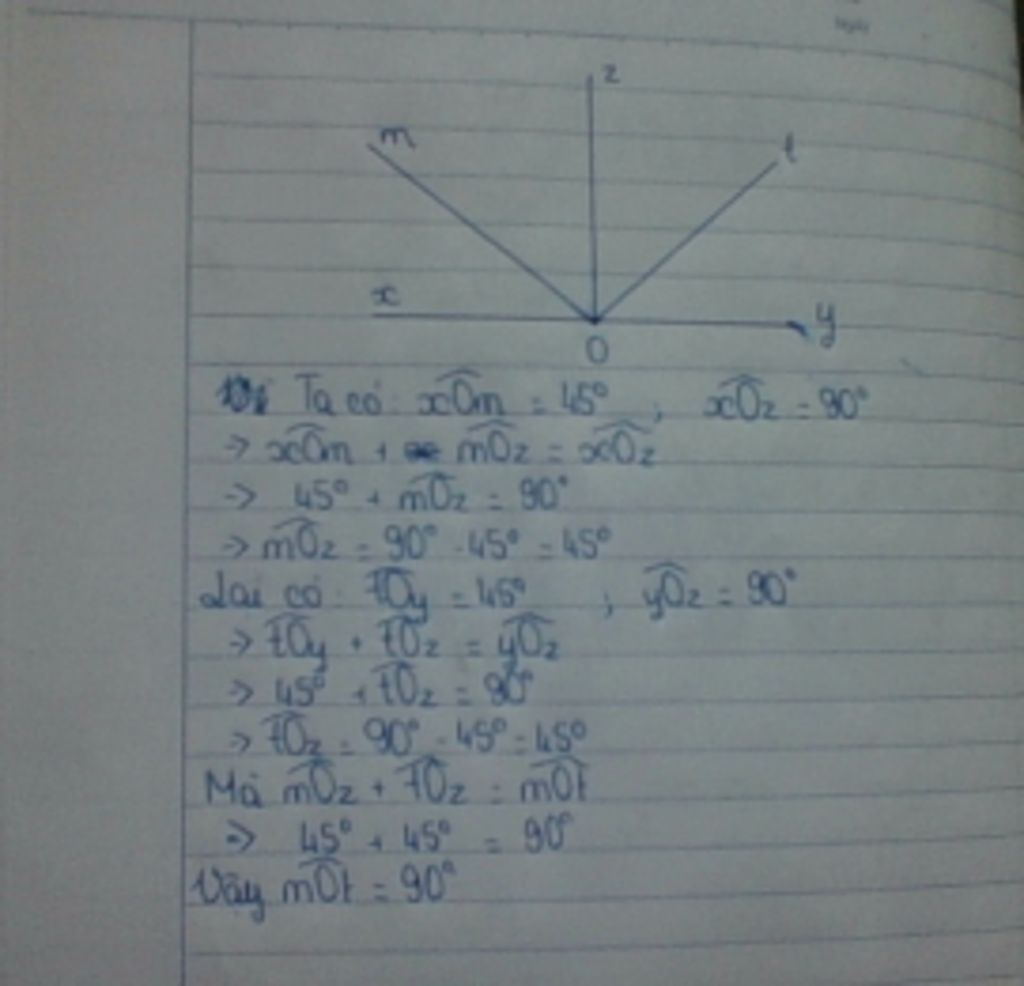 z
m
t
x
y
O
Ta có: xOm = 45° ; xOz = 90°
=> xOm + mOz = xOz
=> 45° + mOz = 90°
=> mOz = 90° - 45° = 45°
Lại có: tOy = 45° ; yOz = 90°
=> tOy + tOz = yOz
=> 45° + tOz = 90°
=> tOz = 90° - 45° = 45°
Mà mOz + tOz = mOt
=> 45° + 45° = 90°
Vậy mOt = 90°